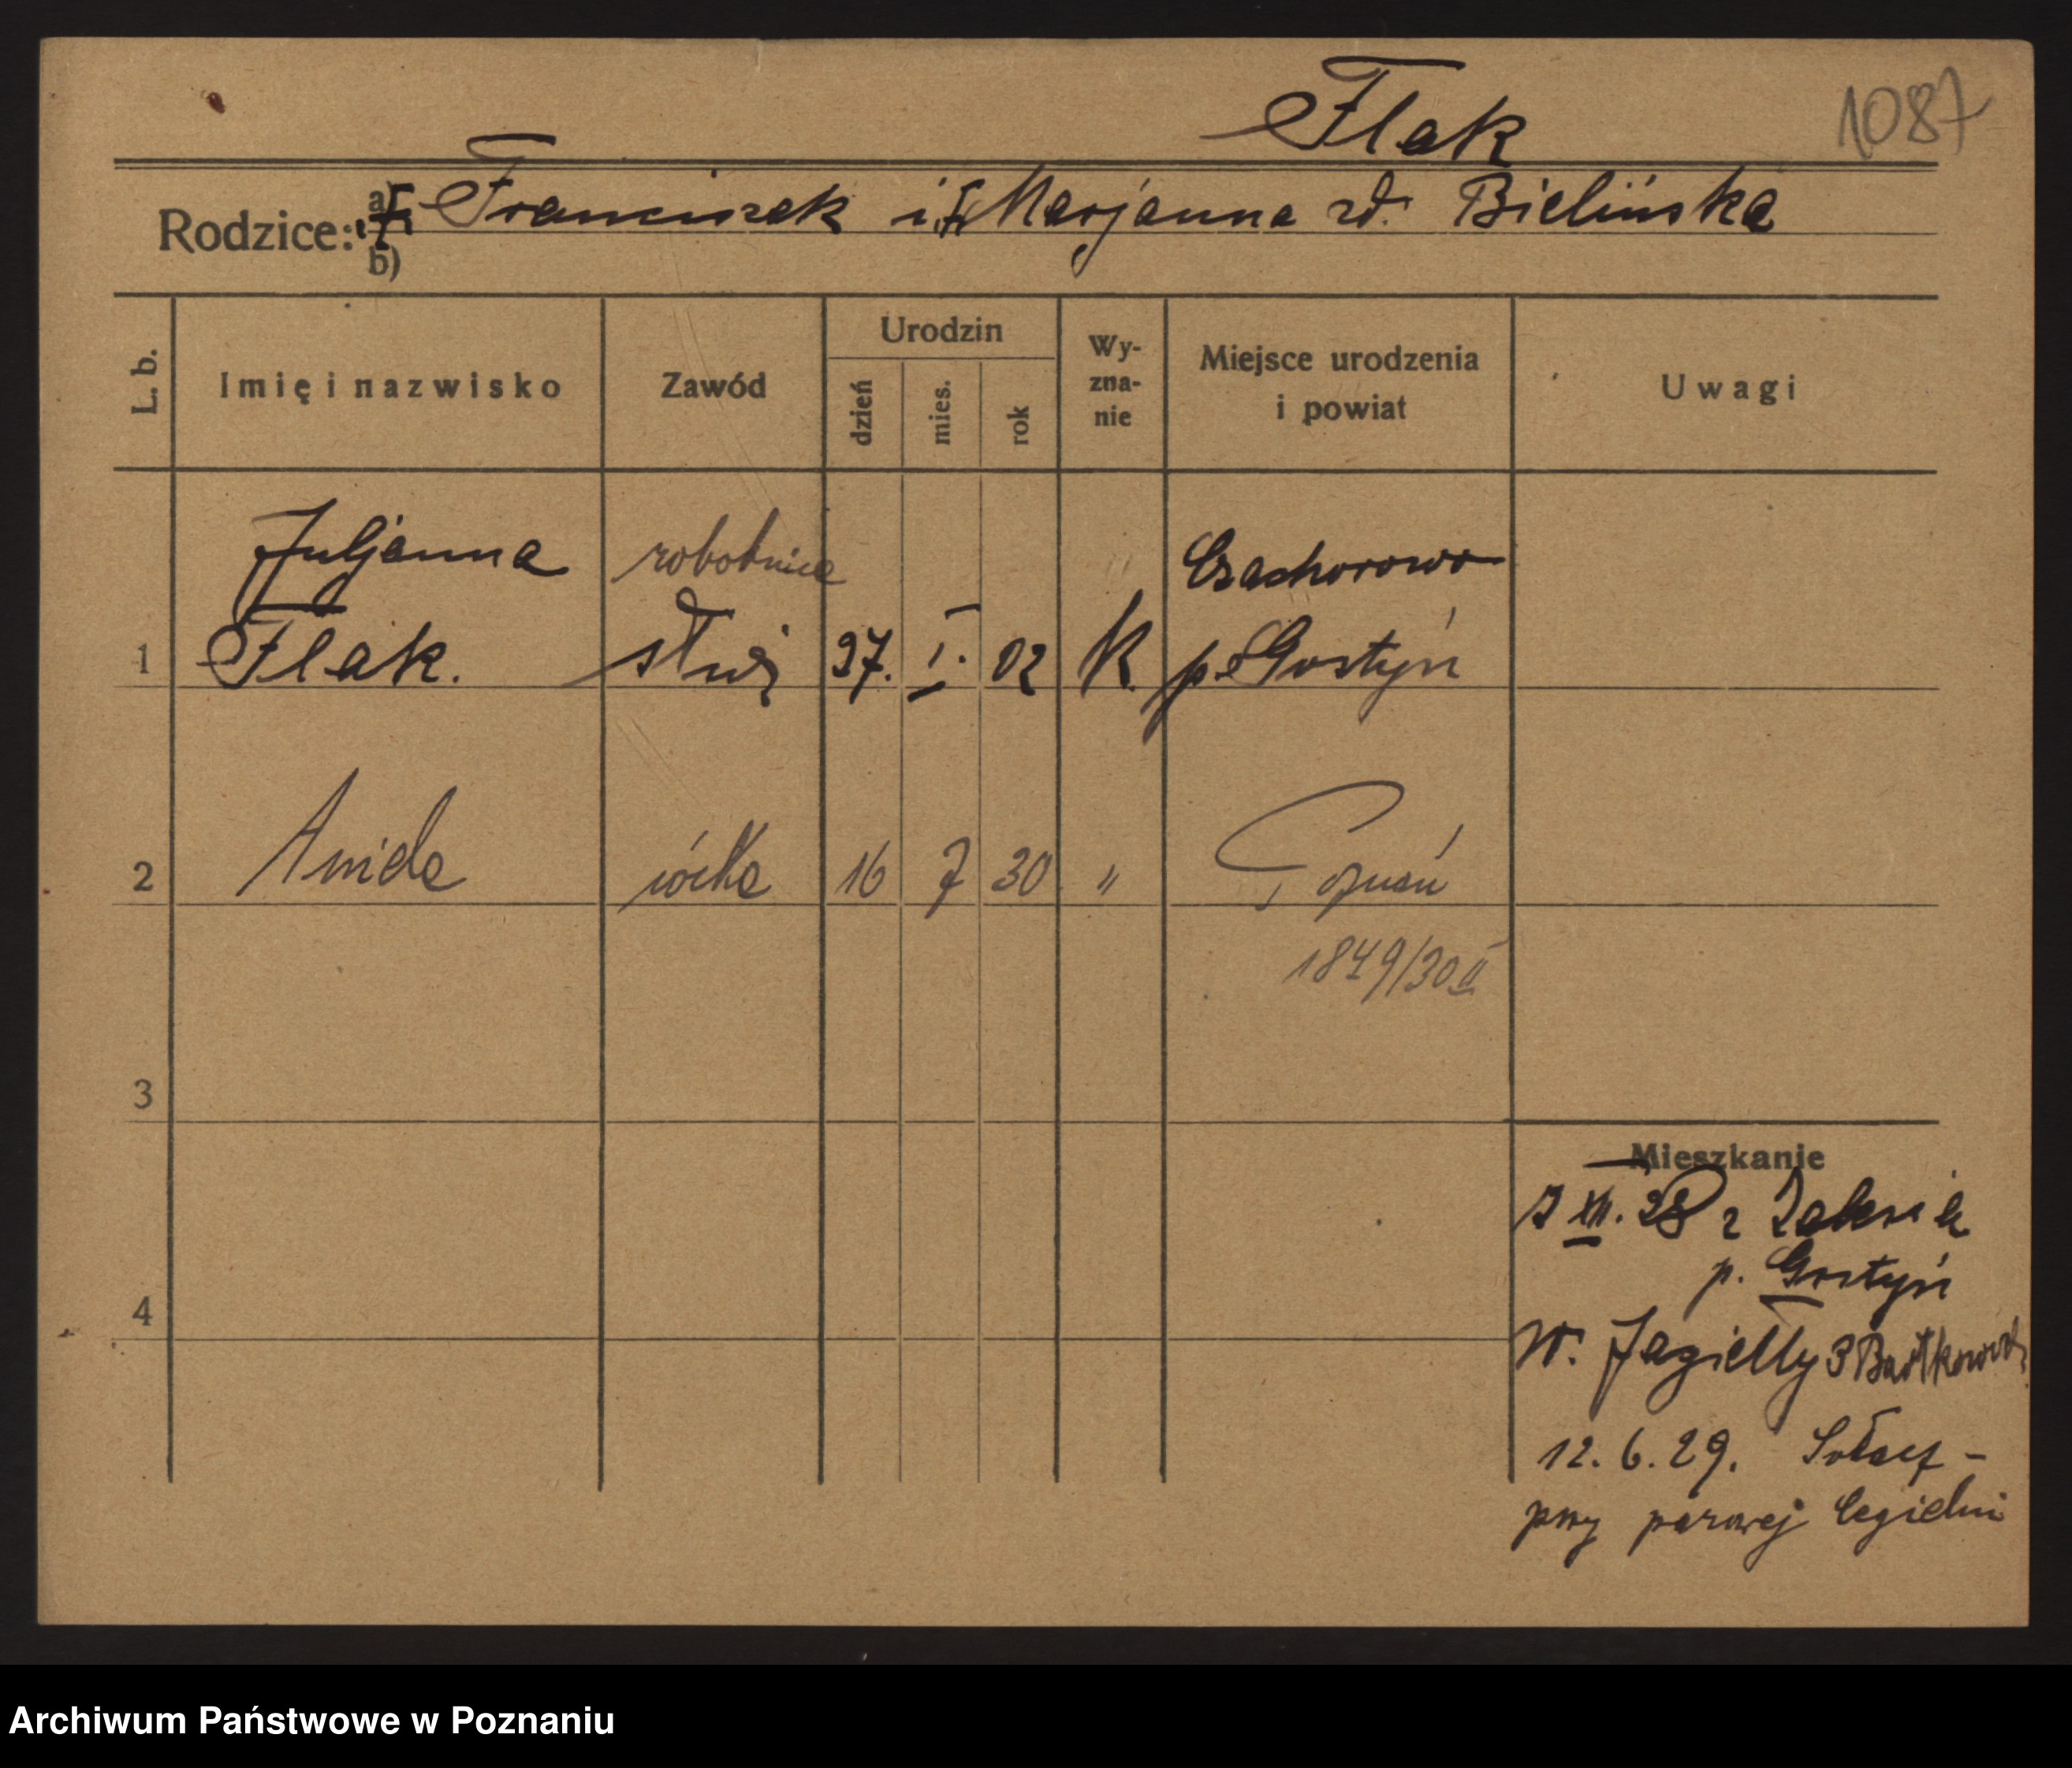 Flak
1087
Rodzice: a) Franciszek i Marjanna zd. Bielińska
b)
L. b.
Imię i nazwisko
Zawód
Urodzin
dzień
mies.
rok
Wy-
zna-
nie
Miejsce urodzenia
i powiat
Uwagi
Juljanna robotnica Czachorowo
1 Flak. służ 27. I. 02 K. p. Gostyń
2 Aniela córka 16 7 30 " Poznań
1849/30 II
3
Mieszkanie
XII. 28 z Zalesia
p. Gostyń
4
W. Jagiełły 3
12.6.29. Sołacz -
przy parowej Cegielni
Archiwum Państwowe w Poznaniu